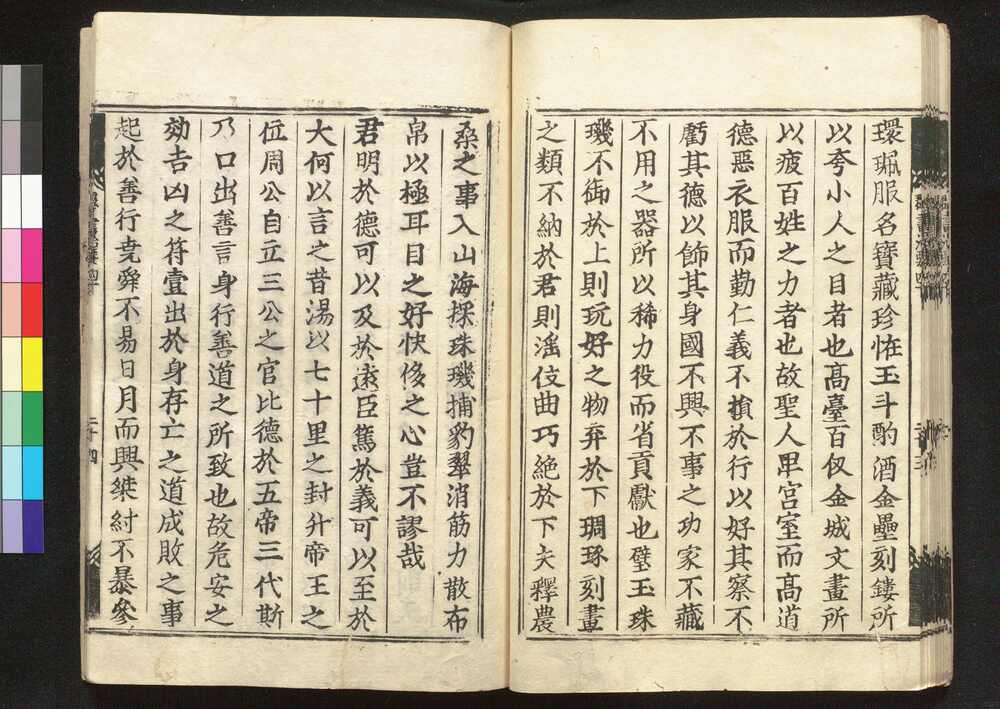 環珮服名寶藏珍怪玉斗酌酒金罍刻鏤所
以夸小人之目者也髙臺百仭金城文畫所
以疲百姓之力者也故聖人卑宮室而髙道
德惡衣服而勤仁義不損於行以好其察不
虧其德以飾其身國不興不事之功家不藏
不用之器所以稀力役而省貢獻也璧玉珠
璣不御於上則玩好之物弃於下琱琢刻畫
之類不納於君則淫伎曲巧絶於下夫釋農
桑之事入山海採珠璣捕豹翠消筋力散布
帛以極耳目之好快侈之心豈不謬哉
君明於德可以及於遠臣篤於義可以至於
大何以言之昔湯以七十里之封升帝王之
位周公自立三公之官比德於五帝三代斯
乃口出善言身行善道之所致也故危安之
効吉凶之符壹出於身存亡之道成敗之事
起於善行尭舜不易日月而興桀紂不暴參
二十四